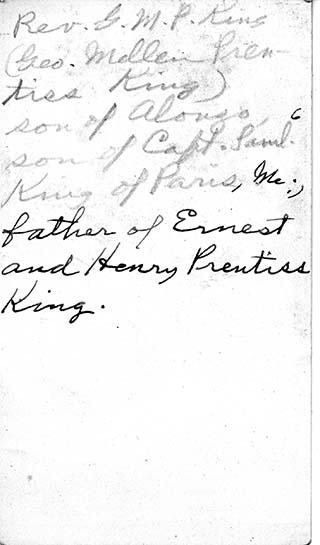 Rev. G. M. P. King
(Geo. Mellen Pren-
tiss King)
son of Alonzo,
son of Capt. Saml. 6
King of Paris, Me.,
father of Ernest
and Henry Prentiss
King.